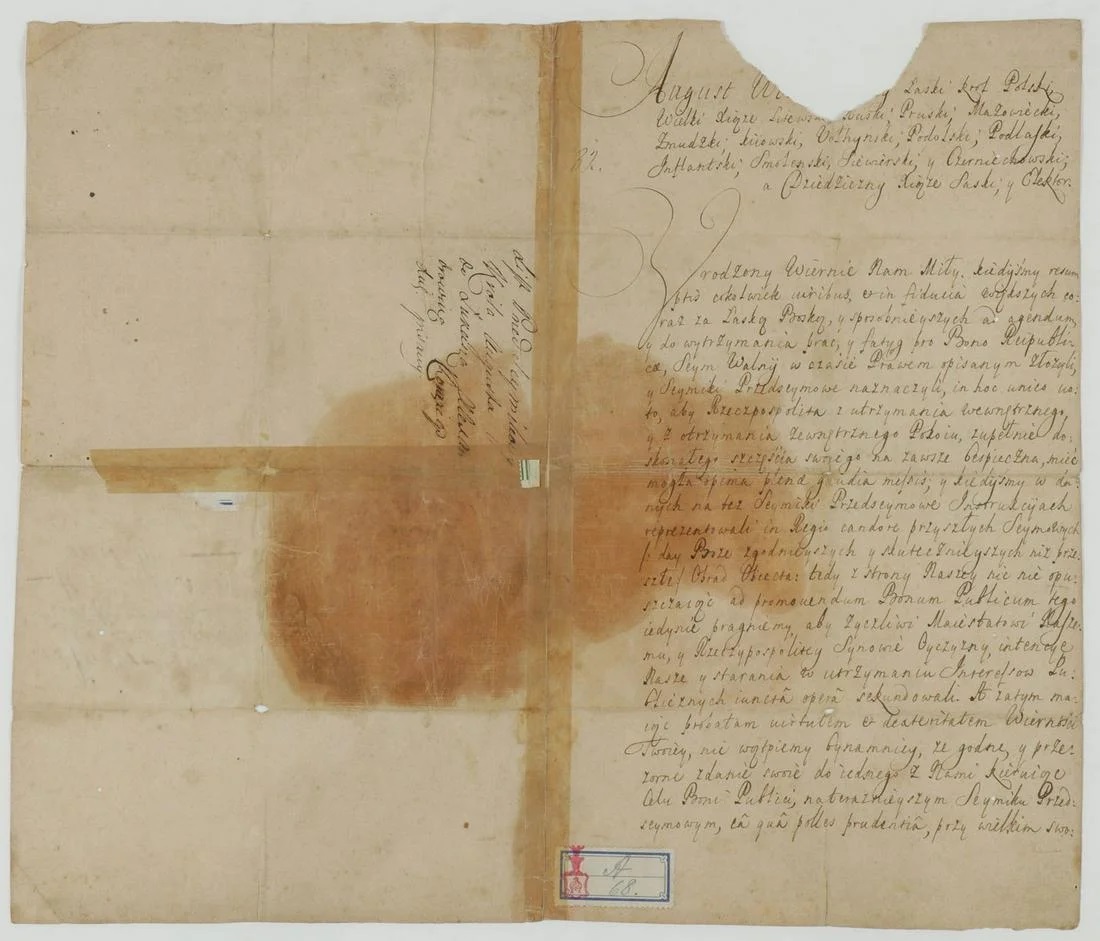 August z Łaski Król Polski,
Wielki Xiąże Litewski Ruski; Pruski, Mazowiecki,
Zmudzki; kiiowski, Wołhynski; Podolski; Podlaski,
Inflantski; Smolenski, Siewierski, y Czerniechowski;
a Dziedziczny Xiąze Saski; y Elektor.
82.
Urodzony Wiernie Nam Miły. kiedyśmy resum
ptis cokolwiek viribus, & in fiducia większych co:
raz za Łaską Boską, y sposobnieyszych ad agendum,
y do wytrzymania prac, y fatyg pro Bono Reipubli:
cæ, Seym Walny w czasie Prawem opisanym złożyli,
y Seymiki Przedseymowe naznaczyli, in hoc unico vo:
to, aby Rzeczpospolita z utrzymania wewnętrznego,
y z otrzymania zewnętrznego Pokoiu, zupełnie do:
skonałego szczęścia swoiego na zawsze bespieczna, mieć
mogła opima plena gaudia messis; y kiedyśmy w da:
nych na też Seymiki Przedseymowe Instrukcyach
reprezentowali in Regio candore przyszłych Seymowych
/: day Boże zgodnieyszych y skutecznieyszych niż prze:
szłe/ Obrad Obiecta: tedy z strony Naszey nic nie opu:
szczaiąc ad promovendum Bonum Publicum tego
iedynie pragniemy, aby życzliwi Maiestatowi Nasze:
mu, y Rzeczypospolitey Synowie Oyczyzny, intencye
Nasze y starania w utrzymaniu Interessow Pu:
blicznych iunctâ operâ sekundowali. A zatym ma:
iąc probatam virtutem & dexteritatem Wierności
Twoiey, nie wątpiemy bynamniey, że godne, y prze:
zorne zdanie swoie do iednego z Nami kieruiąc
Celu Boni Publici, na teraznieyszym Seymiku Przed:
seymowym, eâ quâ polles prudentiâ, przy wielkim swo:
list Przedseymikowy
Krola Augusta
do Łukasza
pisany
A
68.